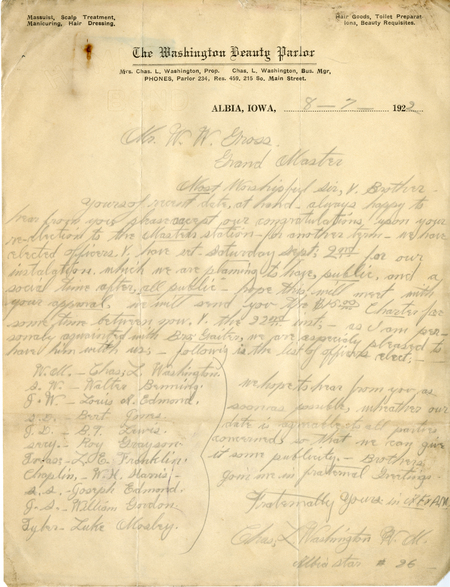 Massuist, Scalp Treatment,
Manicuring, Hair Dressing,
Hair Goods, Toilet Preparat
ions, Beauty Requisites.
The Washington Beauty Parlor
Mrs. Chas. L. Washington, Prop. Chas. L. Washington, Bus. Mgr,
PHONES, Parlor 234, Res. 459, 215 So. Main Street.
ALBIA, IOWA, 8-7 1922
Mr. W. W. Gross.
Grand Master
Most Worshipful sir, & Brother.
Yours of recent date, at hand - always happy to
hear from you please accept our congratulations, upon your
re-election to the Masters station - for another term - we have
elected officers, & have set - Saturday Sept. 2nd for our
instalation, which we are planning to have, public, and a
social time after, all public - hope this, will meet with
your approval. we will send you the $15.00 Charter fee
some time between now, & the 22nd inst, - as I am per-
sonaly aquainted with Bro. Gaiter, we are especialy pleased to
have him with us, - following is the list of officers elect, -
W. M. - Chas. L. Washington
S. W. - Walter Brinning.
J. W. - Louis N. Edmond.
S. D. - Bert Jones.
J. D. - B. F. Lewis.
secy. - Roy Grayson.
Treas - L. E. Franklin.
Chaplin. - W. H. Harris, -
S. S. - Joseph Edmond.
J. S. - William Gordon.
Tyler - Luke Mosley.
we hope to hear from you as
soon as possible, whether our
date is agreeable, to all parties
concerned so that we can give
it some publicity. - Brothers,
join me in fraternal Greetings.
Fraternally Yours in
Chas. L. Washington W. M.
Albia Star # 26